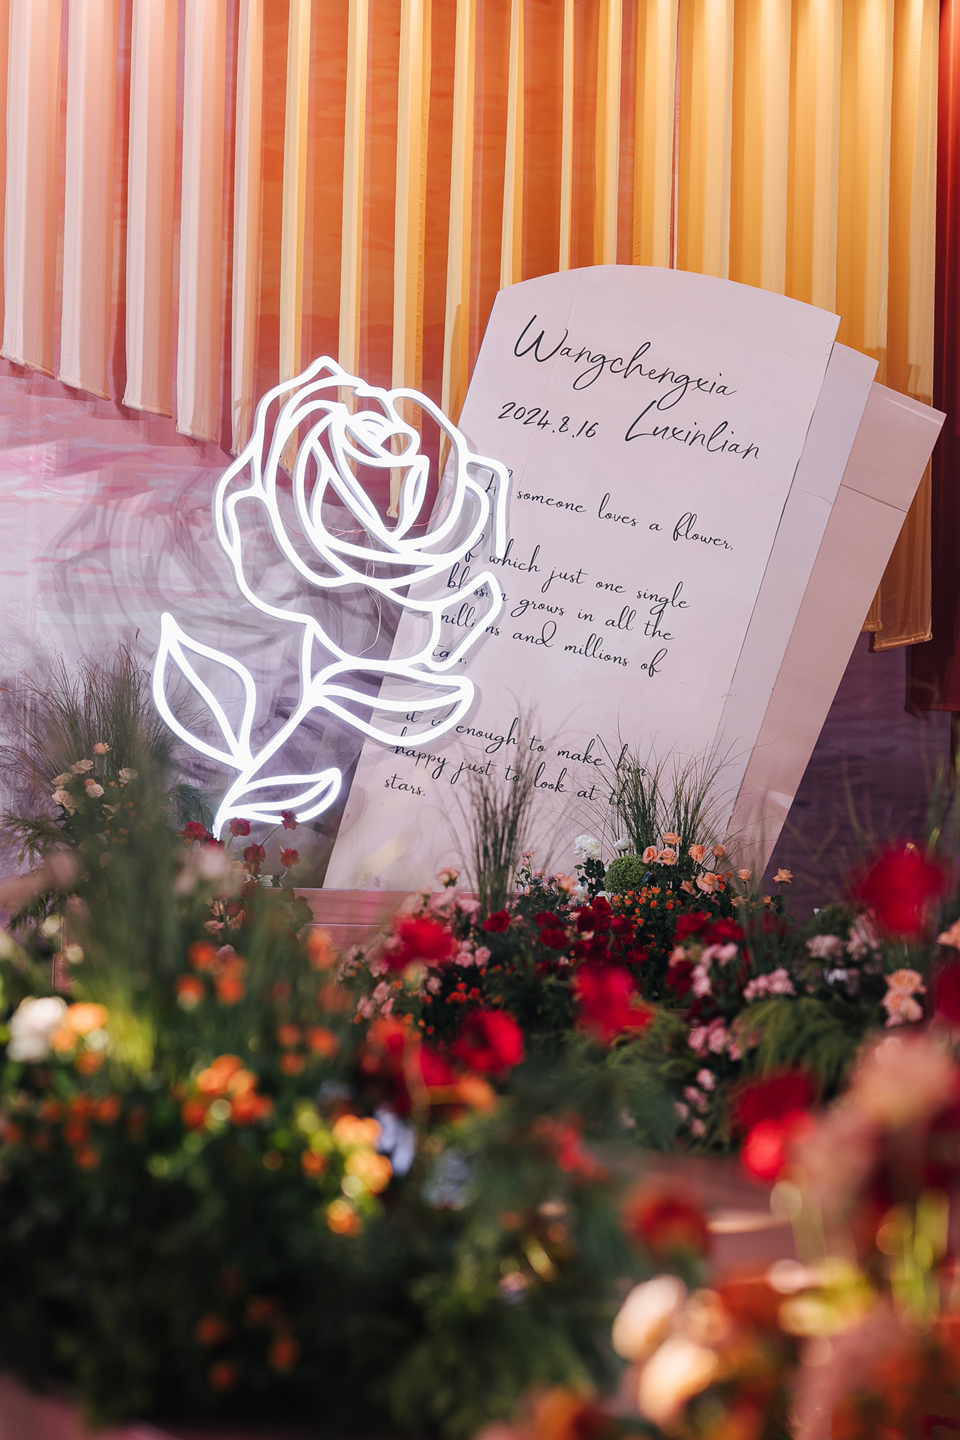 Wangchengxia
2024.8.16 Luxinlian
If someone loves a flower,
of which just one single
blossom grows in all the
millions and millions of
stars,
it is enough to make him
happy just to look at the
stars.